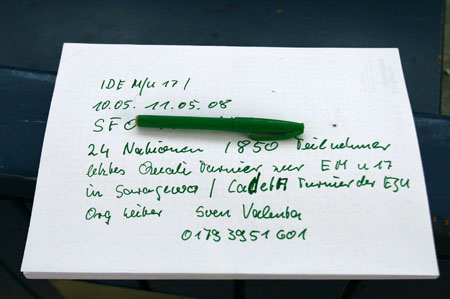 IDE M/W U 17 /
10.05. 11.05.08
SFO
24 Nationen / 850 Teilnehmer
letztes Quali Turnier zur EM u 17
in Saragossa / Cadet A Turnier der EJU
Org leiter Sven Valenta
0179 3951 601